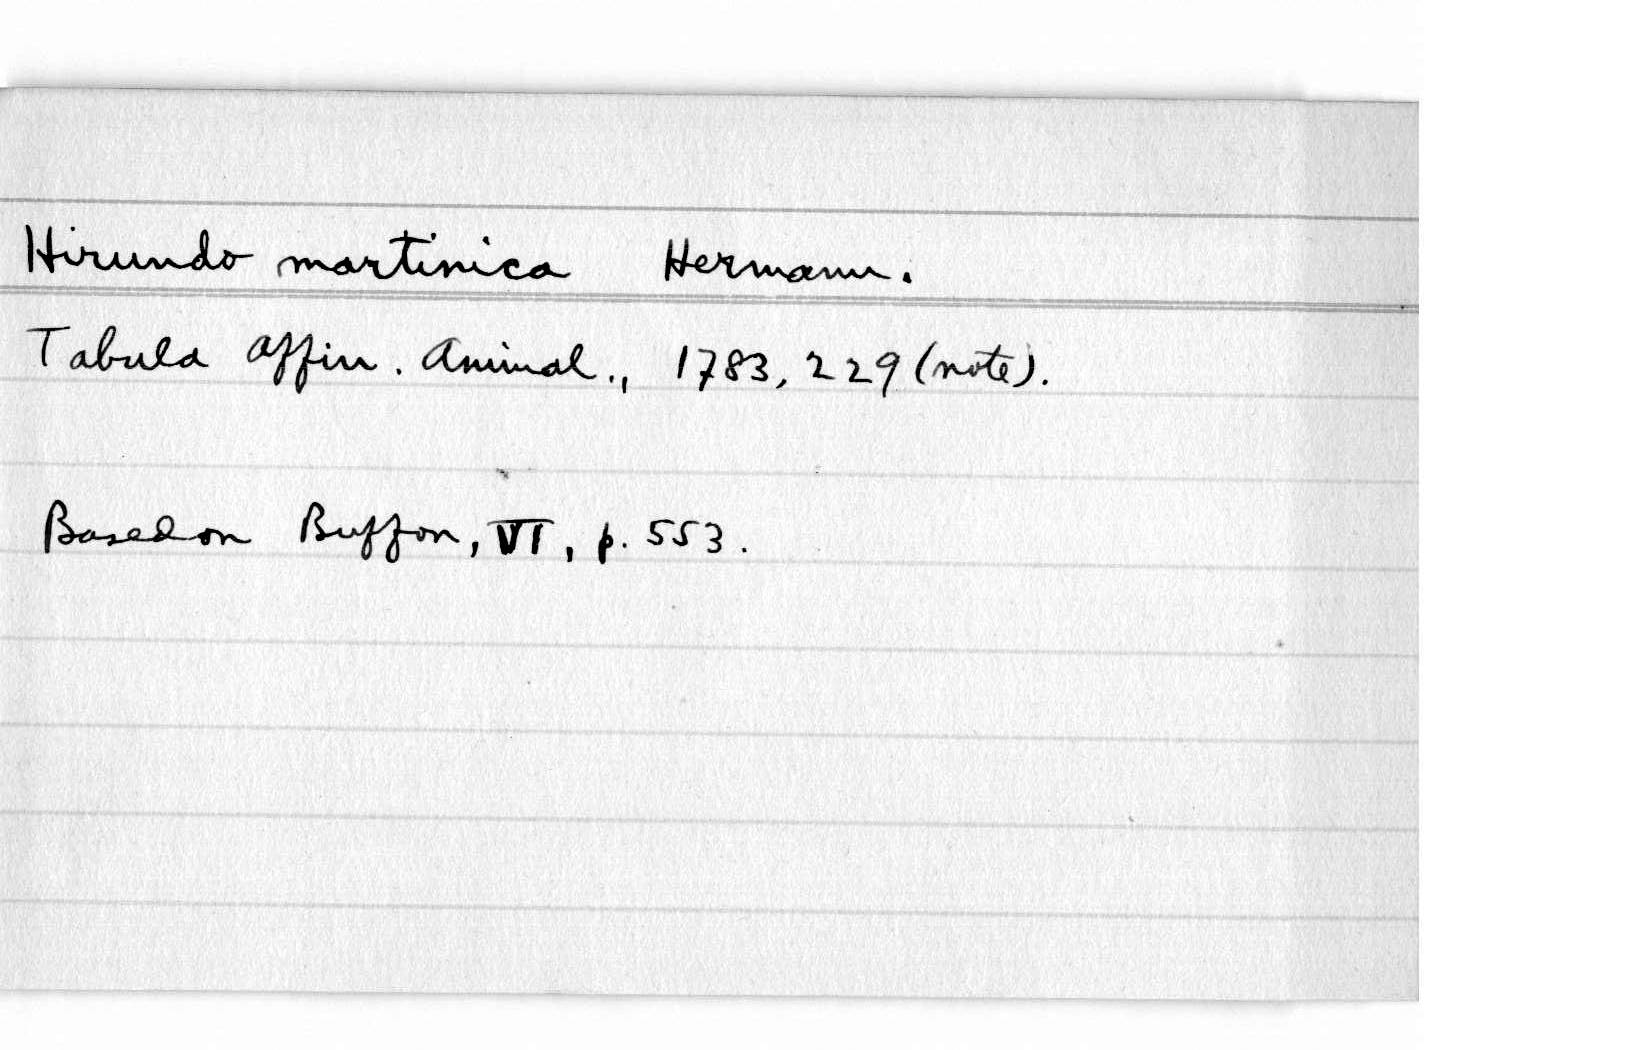 Hirundo martinica Hermann.
Tabula affin. Animal., 1783, 229 (note).
Based on Buffon, VI, p. 553.